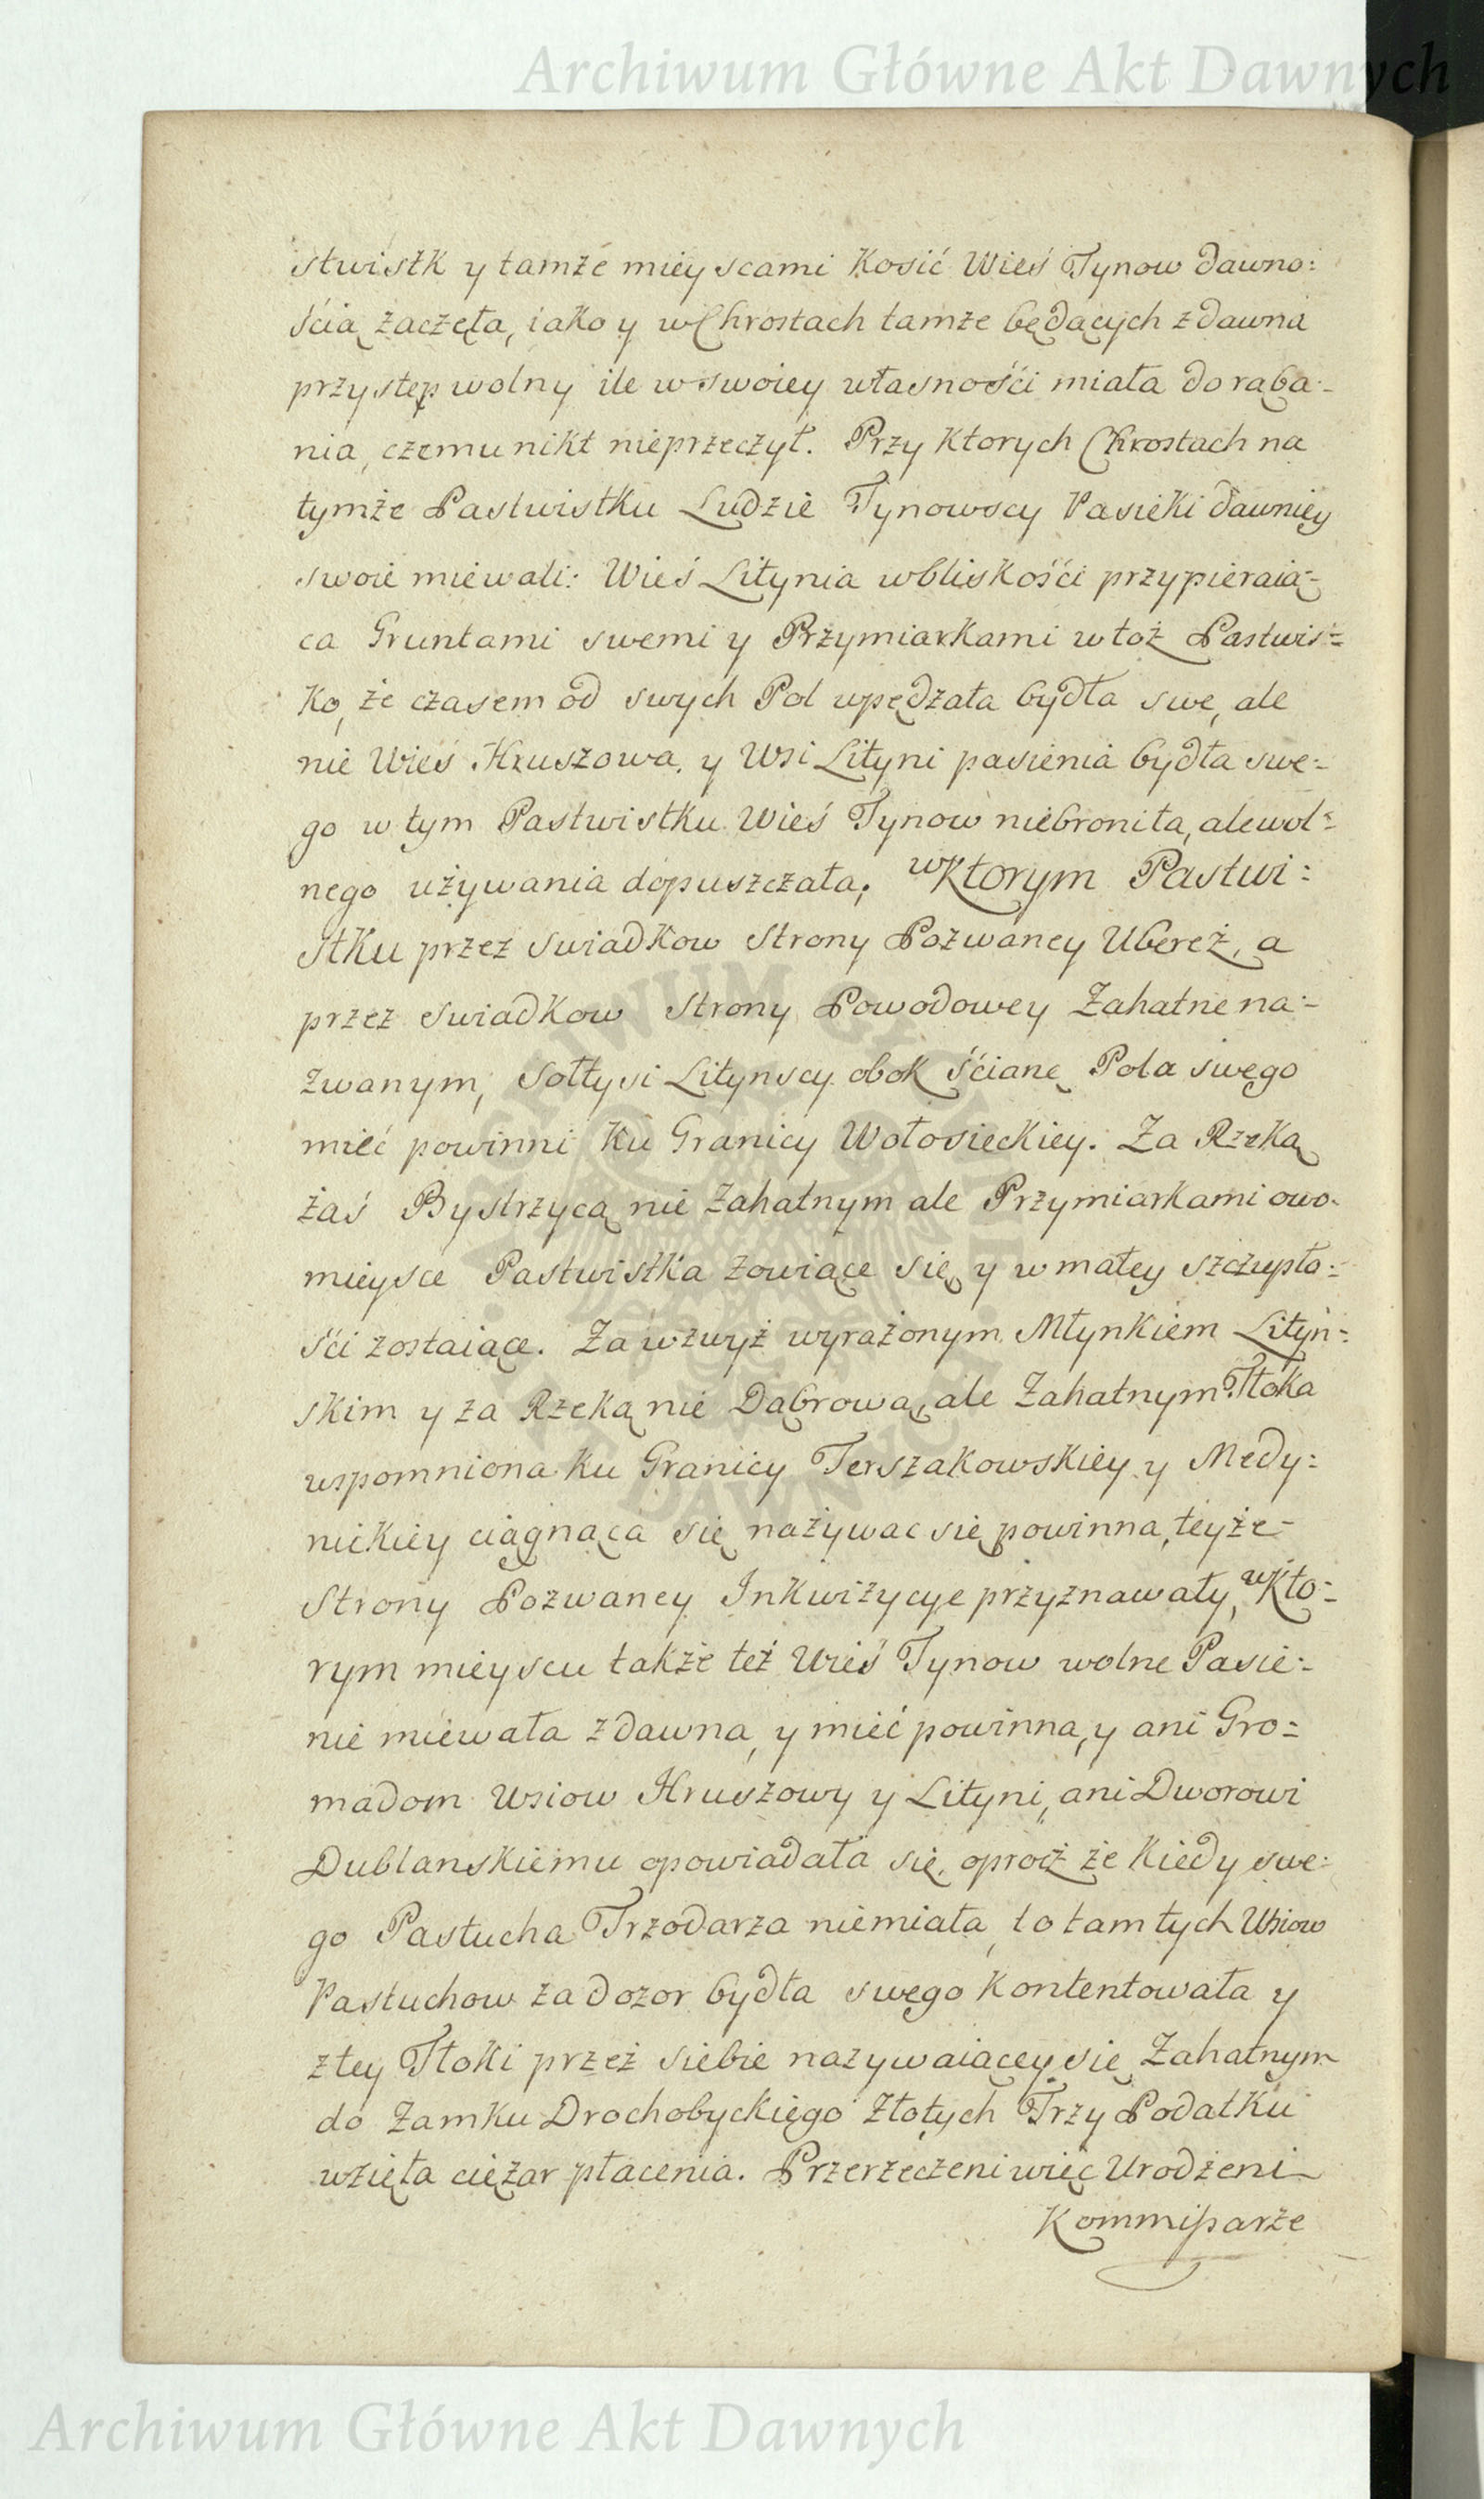 Archiwum Główne Akt Dawnych
stwistk y tamże mieyscami Kosić Wieś Tynow dawno:
ścią zaczęta, iako y w Chrostach tamże będących z dawna
przystęp wolny ile w swoiey własności miała do rąba:
nia, czemu nikt nieprzeczył. Przy Ktorych Chrostach na
tymże Pastwistku Ludzie Tynowscy Pasieki dawniey
swoie miewali: Wieś Litynia wbliskości przypieraią:
ca Gruntami swemi y Przymiarkami w toż Pastwis:
Ko, że czasem od swych Pol wpędzała bydła swe, ale
nie Wieś Hruszowa, y Wsi Lityni pasienia bydła swe:
go w tym Pastwistku Wieś Tynow niebroniła, ale wol:
nego używania dopuszczała; w Ktorym Pastwi:
stku przez swiadkow Strony Pozwaney Ubereż, a
przez swiadkow Strony Powodowey Zahatne na:
zwanym, Sołtysi Litynscy obok ścianę Pola swego
mieć powinni Ku Granicy Wołosieckiey. Za Rzeką
żaś Bystrzycą nie Zahatnym ale Przymiarkami owo
mieysce Pastwistka zowiące się y w małey szczupło:
ści zostaiące. Za wzwyż wyrażonym Młynkiem Lityn:
skim y za Rzeką nie Dąbrową, ale Zahatnym Tłoka
wspomniona Ku Granicy Terszakowskiey y Medy:
nickiey ciągnąca się nażywac się powinna, teyże
Strony Pozwaney Inkwizycye przyznawały, w Kto:
rym mieyscu także też Wieś Tynow wolne Pasie:
nie miewała z dawna, y mieć powinna, y ani Gro:
madom Wsiow Hruszowy y Lityni, ani Dworowi
Dublanskiemu opowiadała się, oprocz że Kiedy swe:
go Pastucha Trzodarza niemiała, to tamtych Wsiow
Pastuchow za dozor bydła swego Kontentowała y
z tey Tłoki przez siebie nazywaiącey się Zahatnym
do Zamku Drochobyckiego Złotych Trzy Podatku
wzięła ciężar płacenia. Przerzeczeni więc Urodzeni
Kommissarze
Archiwum Główne Akt Dawnych